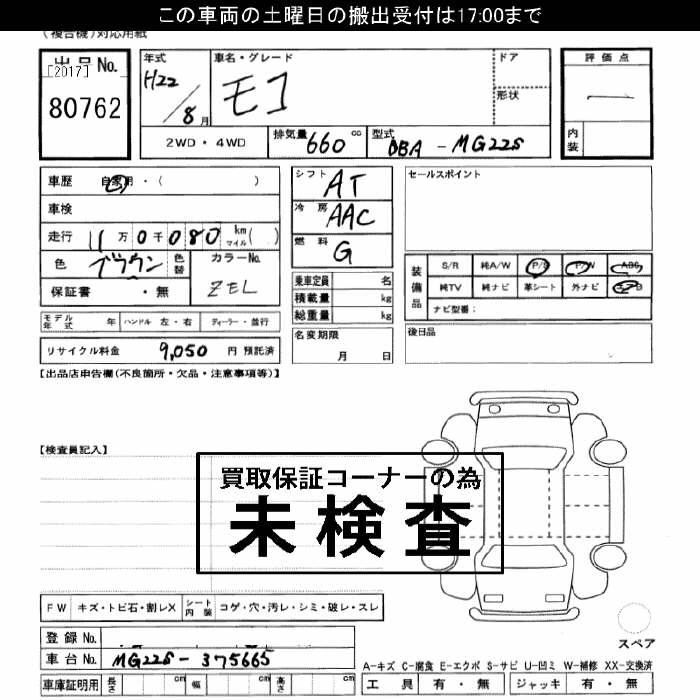 この車両の土曜日の搬出受付は17:00まで
(複合機)対応用紙
出品No.
[2017]
80762
年式
H22
/8月
車名・グレード
モコ
ドア
形状
評価点
—
内装
2WD・4WD
排気量 660 cc
型式 DBA - MG22S
車歴 自家用・( )
車検
走行 11万0千080 km マイル ( )
色 ブラウン 色替
カラーNo. ZEL
保証書 ・無
シフト AT
冷房 AAC
燃料 G
乗車定員 名
積載量 kg
総重量 kg
セールスポイント
装備品
S/R 純A/W P/S P/W ABS
純TV 純ナビ 革シート 外ナビ エアB
ナビ型番:
モデル年式 年 ハンドル 左・右 ディーラー・並行
名変期限
月 日
後日品
リサイクル料金 9,050 円 預託済
【出品店申告欄(不良箇所・欠品・注意事項等)】
【検査員記入】
買取保証コーナーの為
未検査
FW キズ・トビ石・割レX シート内装 コゲ・穴・汚レ・シミ・破レ・スレ
登録No.
スペア
車台No. MG22S-375665
A-キズ C-腐食 E-エクボ S-サビ U-凹ミ W-補修 XX-交換済
車庫証明用 長さ cm 幅 cm 高さ cm
工具 有・無 ジャッキ 有・無